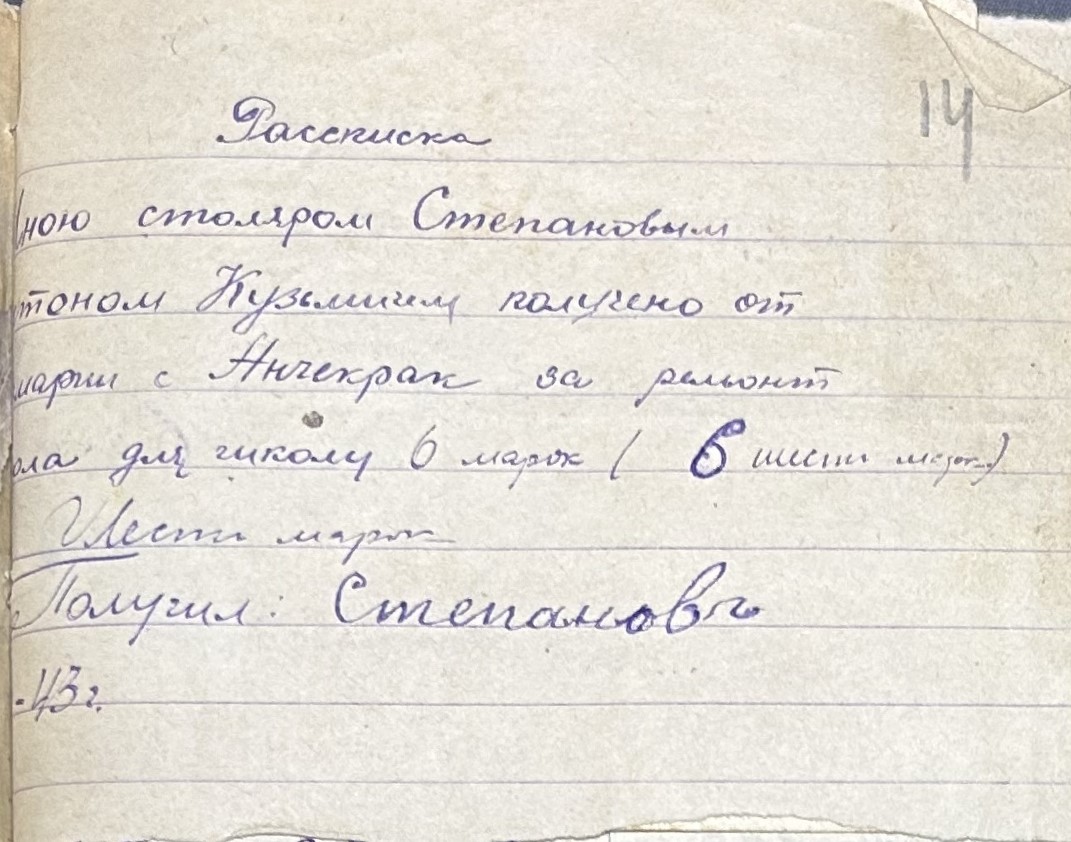 14
Рассписка
мною столяром Степановым
тоном Кузьмичем получено от
марии с Анчекрак за ремонт
ола для школы 6 марок ( 6 шесть марок)
Шесть марок
Получил: Степановъ
.43 г.